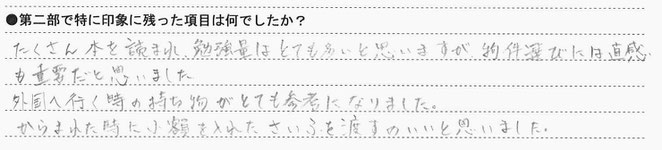 ●第二部で特に印象に残った項目は何でしたか？
たくさん本を読まれ、勉強量はとても多いと思いますが、物件選びには直感
も重要だと思いました
外国へ行く時の持ち物がとても参考になりました。
からまれた時に小額を入れたさいふを渡すのいいと思いました。